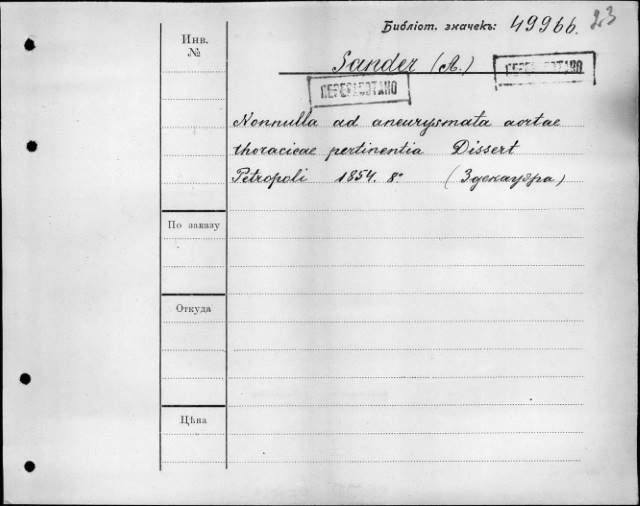 Библіот. значекъ: 49966. 23
Инв.
№
Sander (A.)
ПЕРЕРАБОТАНО
ПЕРЕРАБОТАНО
Nonnulla ad aneurysmata aortae
thoracicae pertinentia Dissert
Petropoli 1854. 8° (Здекауэра)
По заказу
Откуда
Цѣна